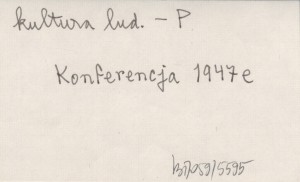 kultura lud. - P
Konferencja 1947 e
BI/059/5595